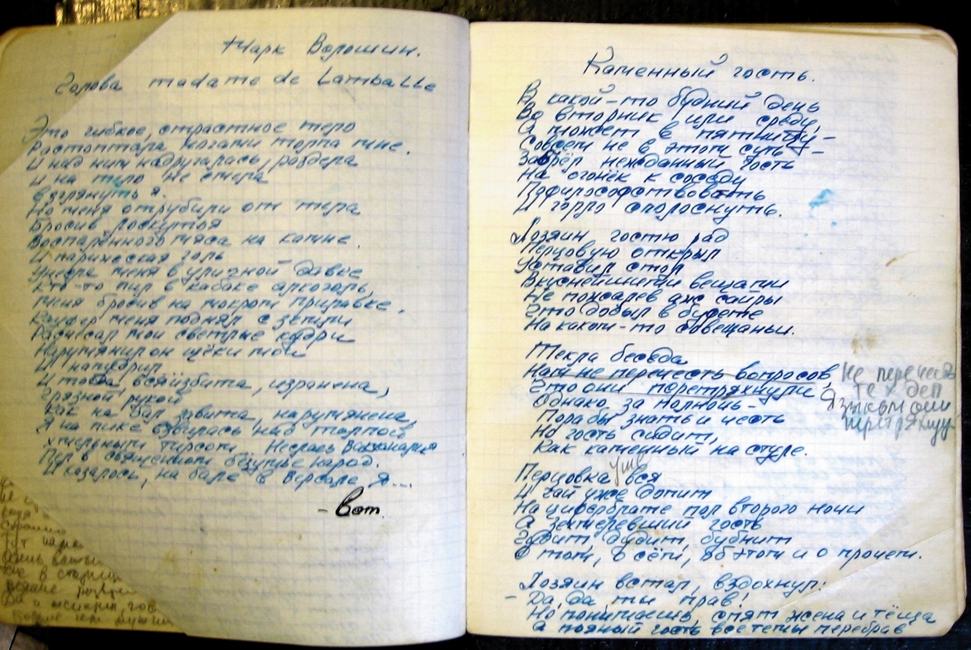 Марк Волошин.
Голова madame de Lamballe
Это гибкое, страстное тело
Растоптала ногами толпа мне.
И над ним надругалась, раздела
И на тело не смела
взглянуть я.
Но меня отрубили от тела
Бросив лоскутья
Воспалённого мяса на камне.
И парижская голь
Унесла меня в уличной давке
Кто-то пил в кабаке алкоголь,
Меня бросив на мокром прилавке.
Куафер меня поднял с земли
Расчесал мои светлые кудри
Нарумянил он щёки мои
И напудрил
И тогда вся избита, изранена,
Грязной рукой
Как на бал завита, нарумянена
Я на пике взвилась над толпой
хмельным тирсом. Неслась вакханалия
Пел в священном безумье народ.
И казалось, на бале в Версале я...
- Вот.
Каменный гость.
В какой-то будний день
Во вторник или среду,
А может в пятницу, -
Совсем не в этом суть -
Забрёл нежданный гость
На огонёк к соседу
Пофилософствовать
И горло сполоснуть.
Хозяин гостю рад
Перцовую открыл
Уставил стол
Вкуснейшими вещами
Не пожалев аж сайры
Что добыл в буфете
На каком-то совещаньи.
Текла беседа
Нам не перечесть вопросов,
Что они перетряхнули
Не перечесть
тех дел
Языком они
перетряхнул
Однако за полночь -
Пора бы знать и честь
Но гость сидит,
Как каменный на стуле.
Перцовка уж вся
И чай уже допит
На циферблате пол второго ночи
А захмелевший гость
Гудит, бубнит
О том, о сём, об этом и о прочем.
Хозяин встал, вздохнул:
- Да, да ты прав!
Но понимаешь, спят жена и тёща
А пьяный гость все темы перебрав